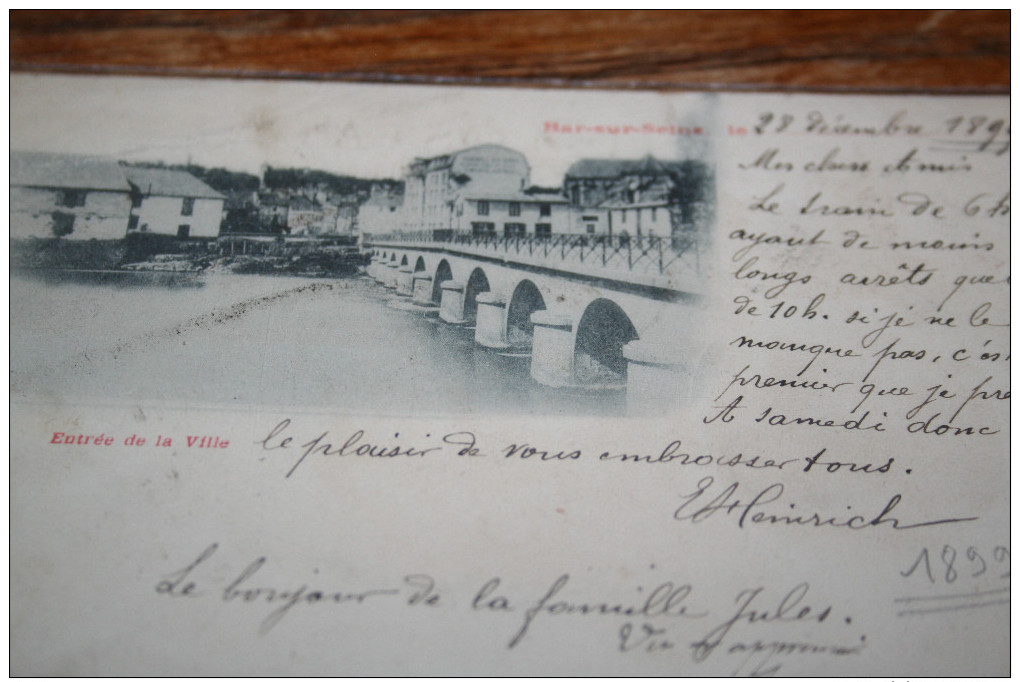 Bar-sur-Seine, le 28 décembre 1899
Mes chers Amis
Le train de 6h
ayant de moins
longs arrêts que
de 10h. si je ne le
manque pas, c'est
premier que je pre
A samedi donc
Entrée de la Ville
le plaisir de vous embrasser tous.
Heinrich
1899
Le bonjour de la famille Jules.
Vu et approuvé